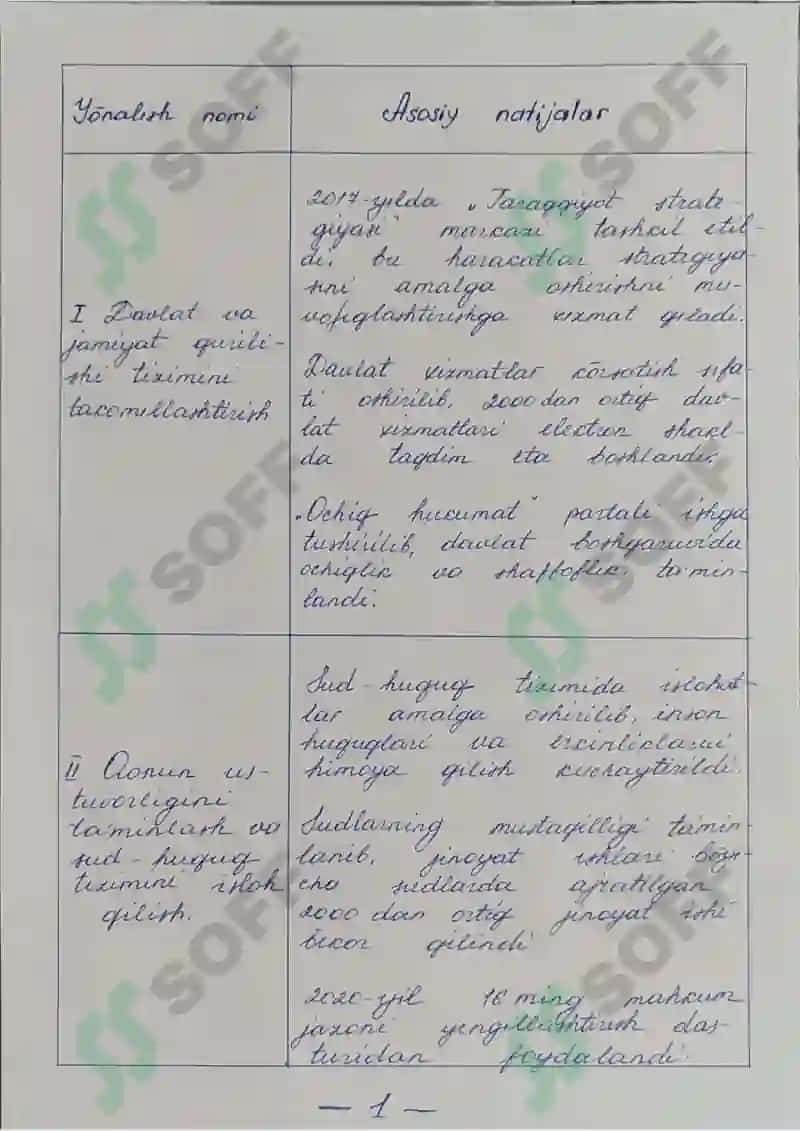 Yōnalish nomi
Asosiy natijalar
I Davlat va
jamiyat qurili-
shi tizimini
takomillashtirish
2017-yilda „Taraqqiyot strate-
giyasi" markazi tashkil etil-
di, bu harakatlar strategiya-
sini amalga oshirishni mu-
vofiqlashtirishga xizmat qiladi.
Davlat xizmatlar kōrsatish sifa-
ti oshirilib, 2000 dan ortiq dav-
lat xizmatlari elektron shakl-
da taqdim eta boshlandi.
„Ochiq hukumat" portali ishga
tushirilib, davlat boshqaruvida
ochiqlik va shaffoflik ta'min-
landi.
II Qonun us-
tuvorligini
ta'minlash va
sud-huquq
tizimini isloh
qilish.
Sud-huquq tizimida islohot-
lar amalga oshirilib, inson
huquqlari va erkinliklarini
himoya qilish kuchaytirildi.
Sudlarning mustaqilligi ta'min-
lanib, jinoyat ishlari bōyi-
cha sudlarda ajratilgan
2000 dan ortiq jinoyat ishi
bekor qilindi
2020-yil 16 ming mahkum
jazoni yengillashtirish das-
turidan foydalandi.
— 1 —
SOFF
SOFF
SOFF
SOFF
SOFF
SOFF